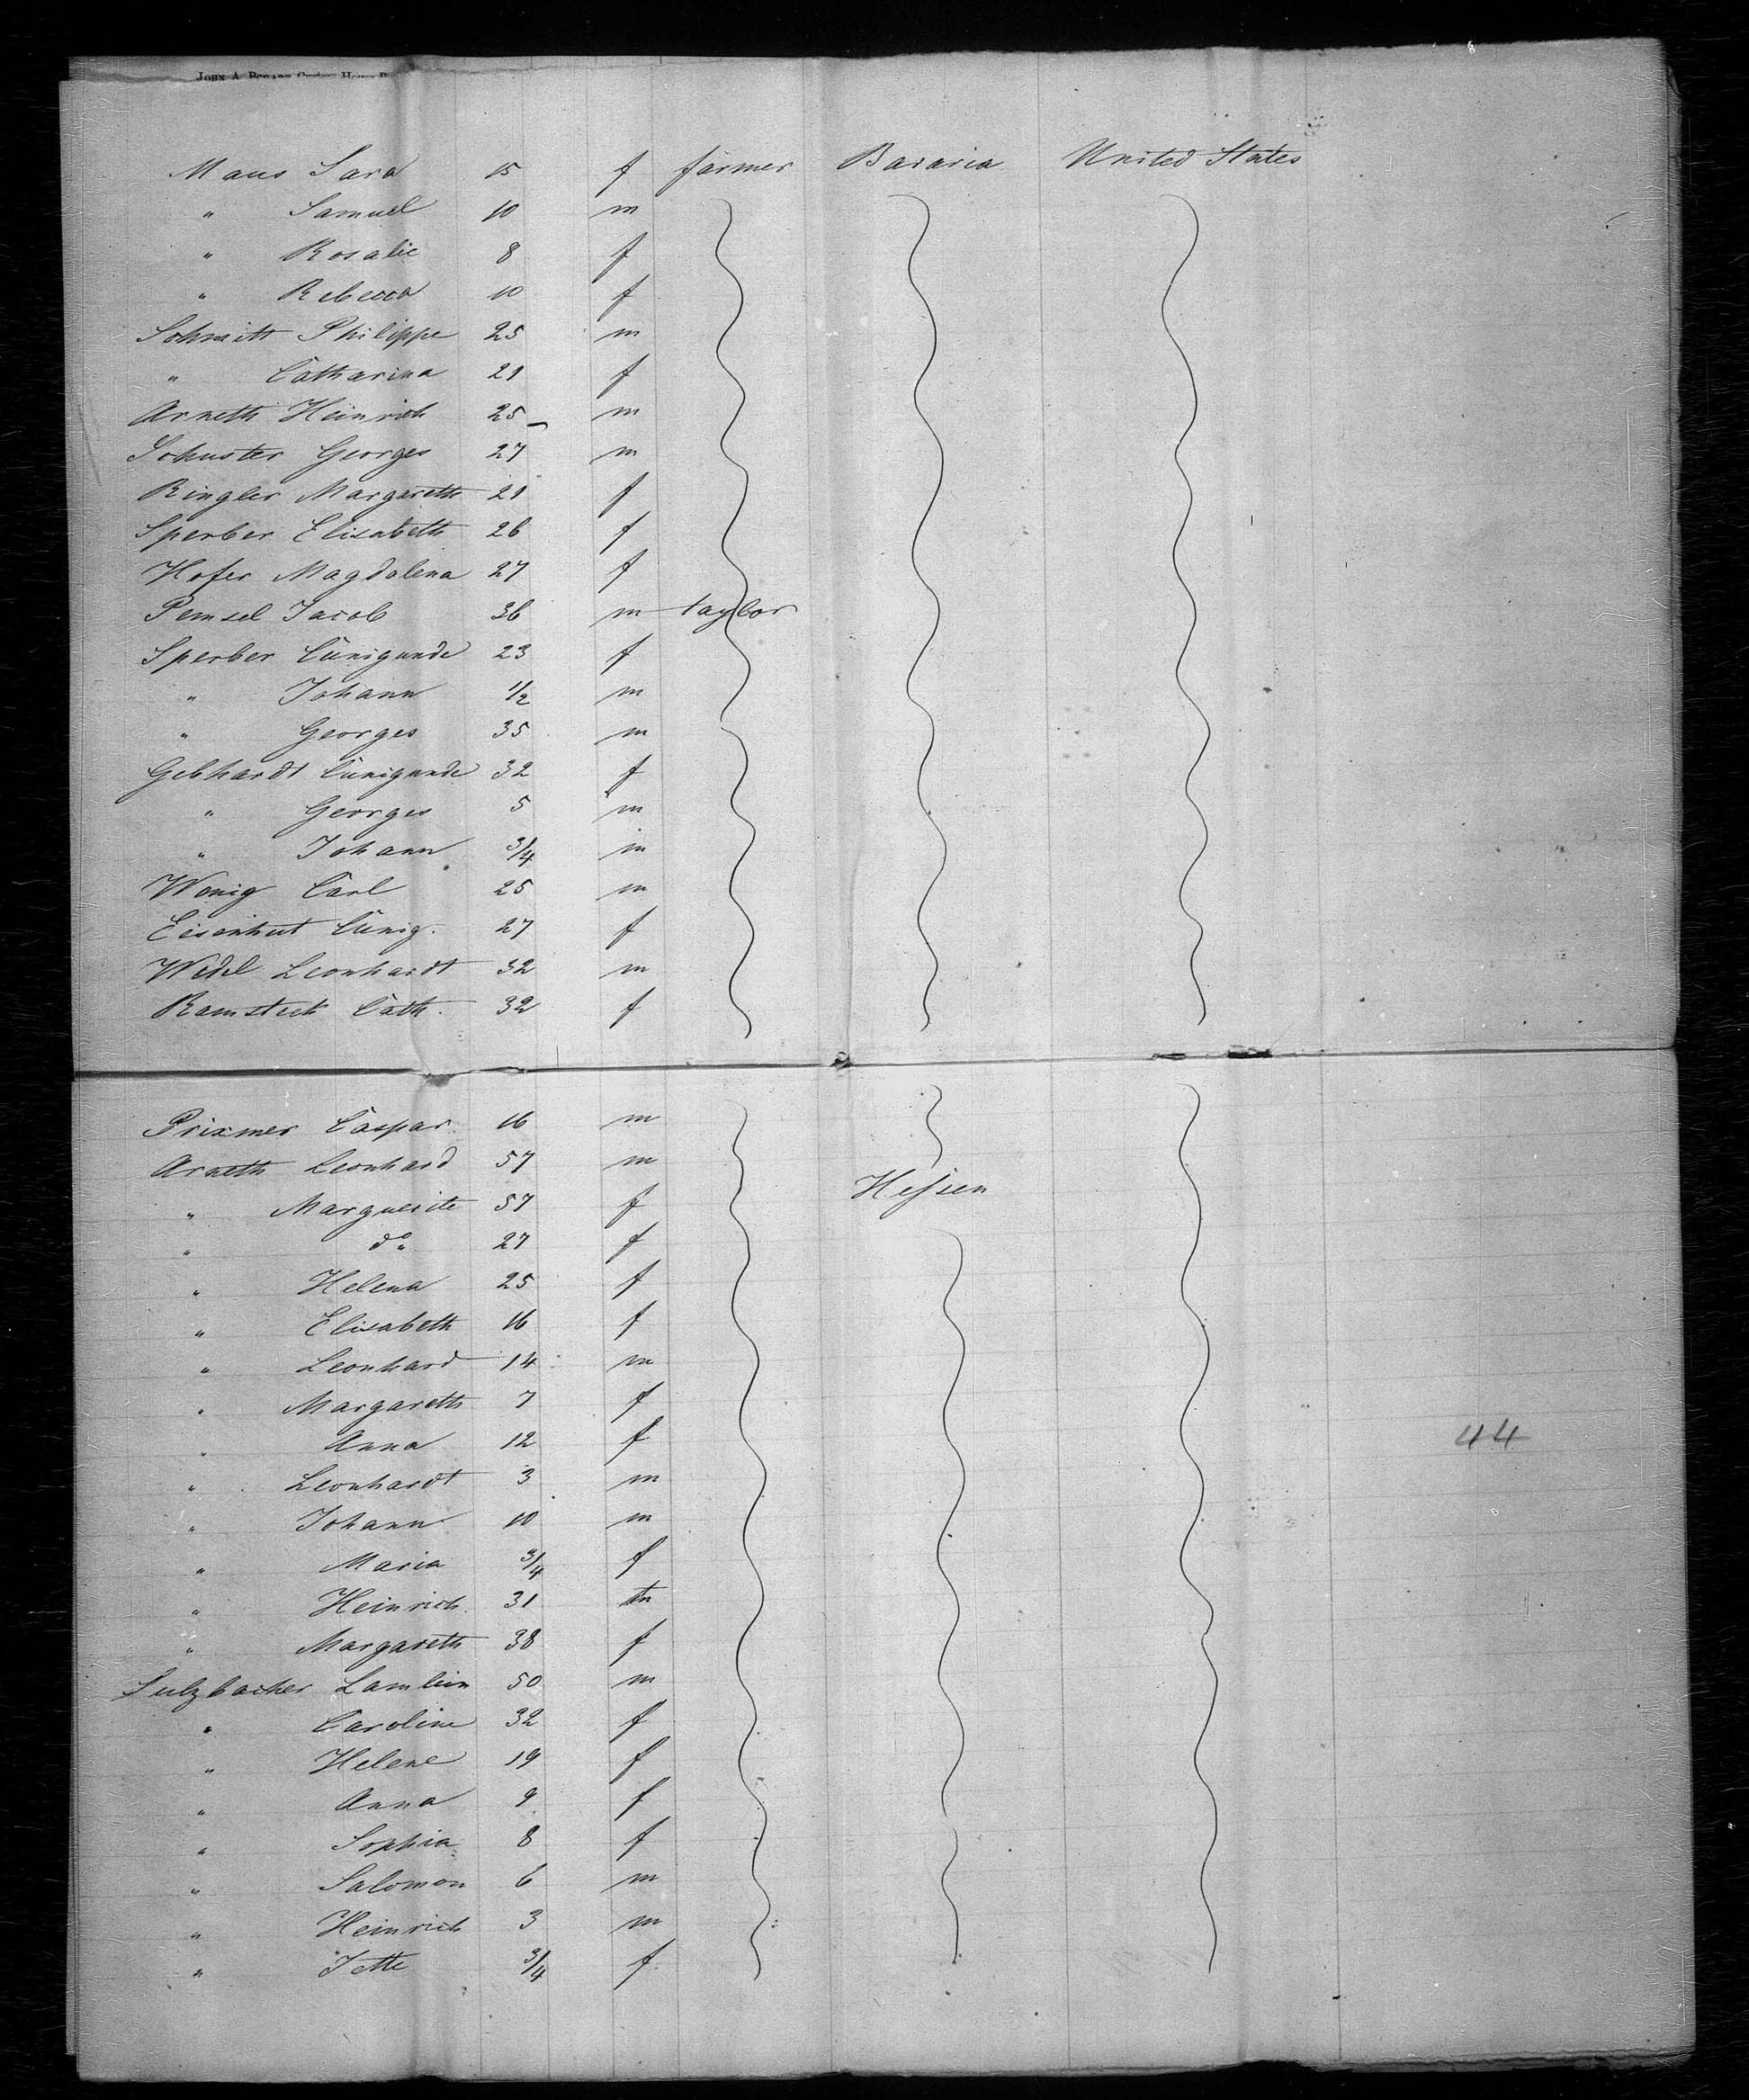 JOHN A.
Maus Sara 15 f farmer Bavaria United States
" Samuel 10 m
" Rosalie 8 f
" Rebecca 10 f
Schmitt Philippe 25 m
" Catharina 21 f
Arneth Heinrich 25 m
Schuster Georges 27 m
Ringler Margareth 21 f
Sperber Elisabeth 26 f
Hofer Magdalena 27 f
Pemsel Jacob 36 m taylor
Sperber Cunigunde 23 f
" Johann 1/2 m
" Georges 35 m
Gebhardt Cunigunde 32 f
" Georges 5 m
" Johann 3/4 m
Wenig Carl 25 m
Eisenhut Cunig. 27 f
Wedel Leonhardt 32 m
Ramsteck Cath. 32 f
Prixmer Caspar 16 m
Arneth Leonhard 57 m
" Marguerite 57 f Hessen
" do 27 f
" Helena 25 f
" Elisabeth 16 f
" Leonhard 14 m
" Margareth 7 f
" Anna 12 f 44
" Leonhardt 3 m
" Johann 10 m
" Maria 3/4 f
" Heinrich 31 m
" Margareth 38 f
Sulzbacher Lamlein 50 m
" Caroline 32 f
" Helene 19 f
" Anna 9 f
" Sophia 8 f
" Salomon 6 m
" Heinrich 3 m
" Jette 3/4 f